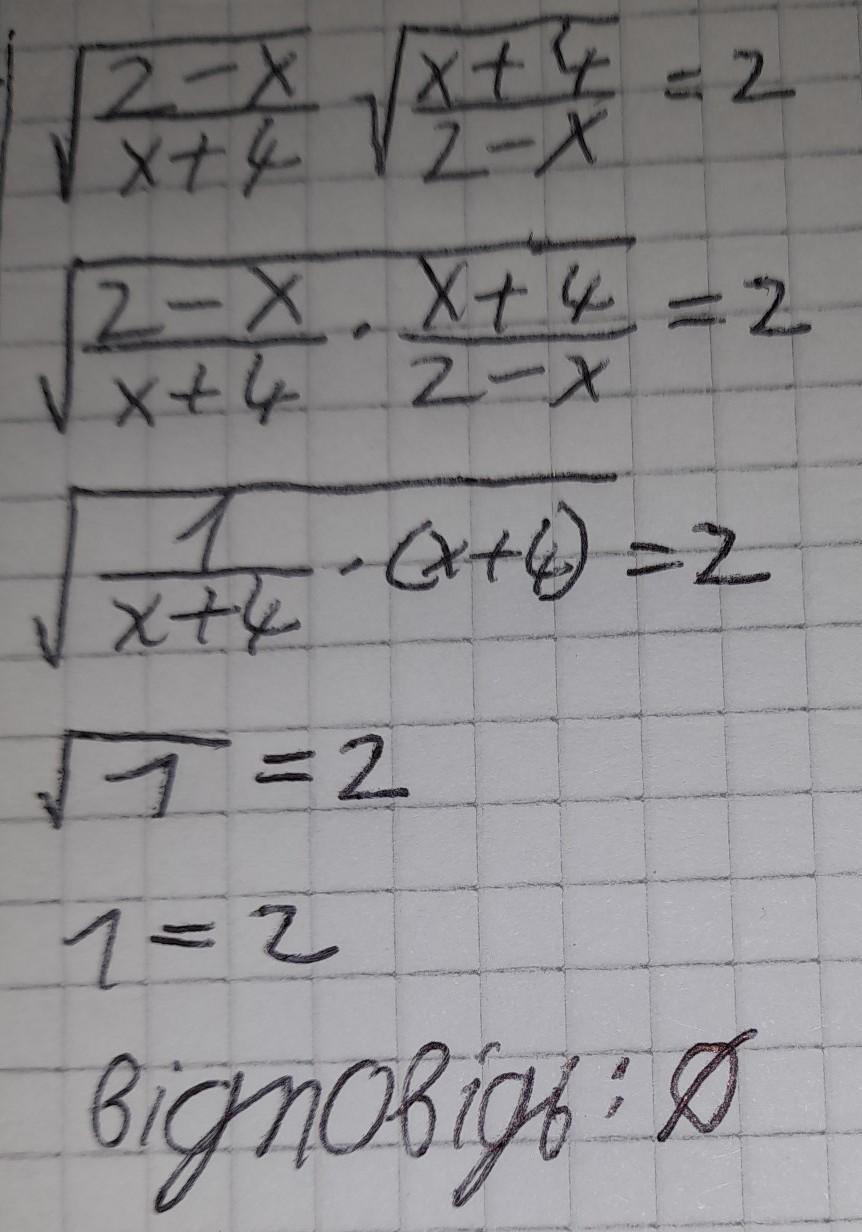 √((2-x)/(x+4)) √((x+4)/(2-x)) = 2
√((2-x)/(x+4) · (x+4)/(2-x)) = 2
√(1/(x+4) · (x+4)) = 2
√1 = 2
1 = 2
відповідь: Ø